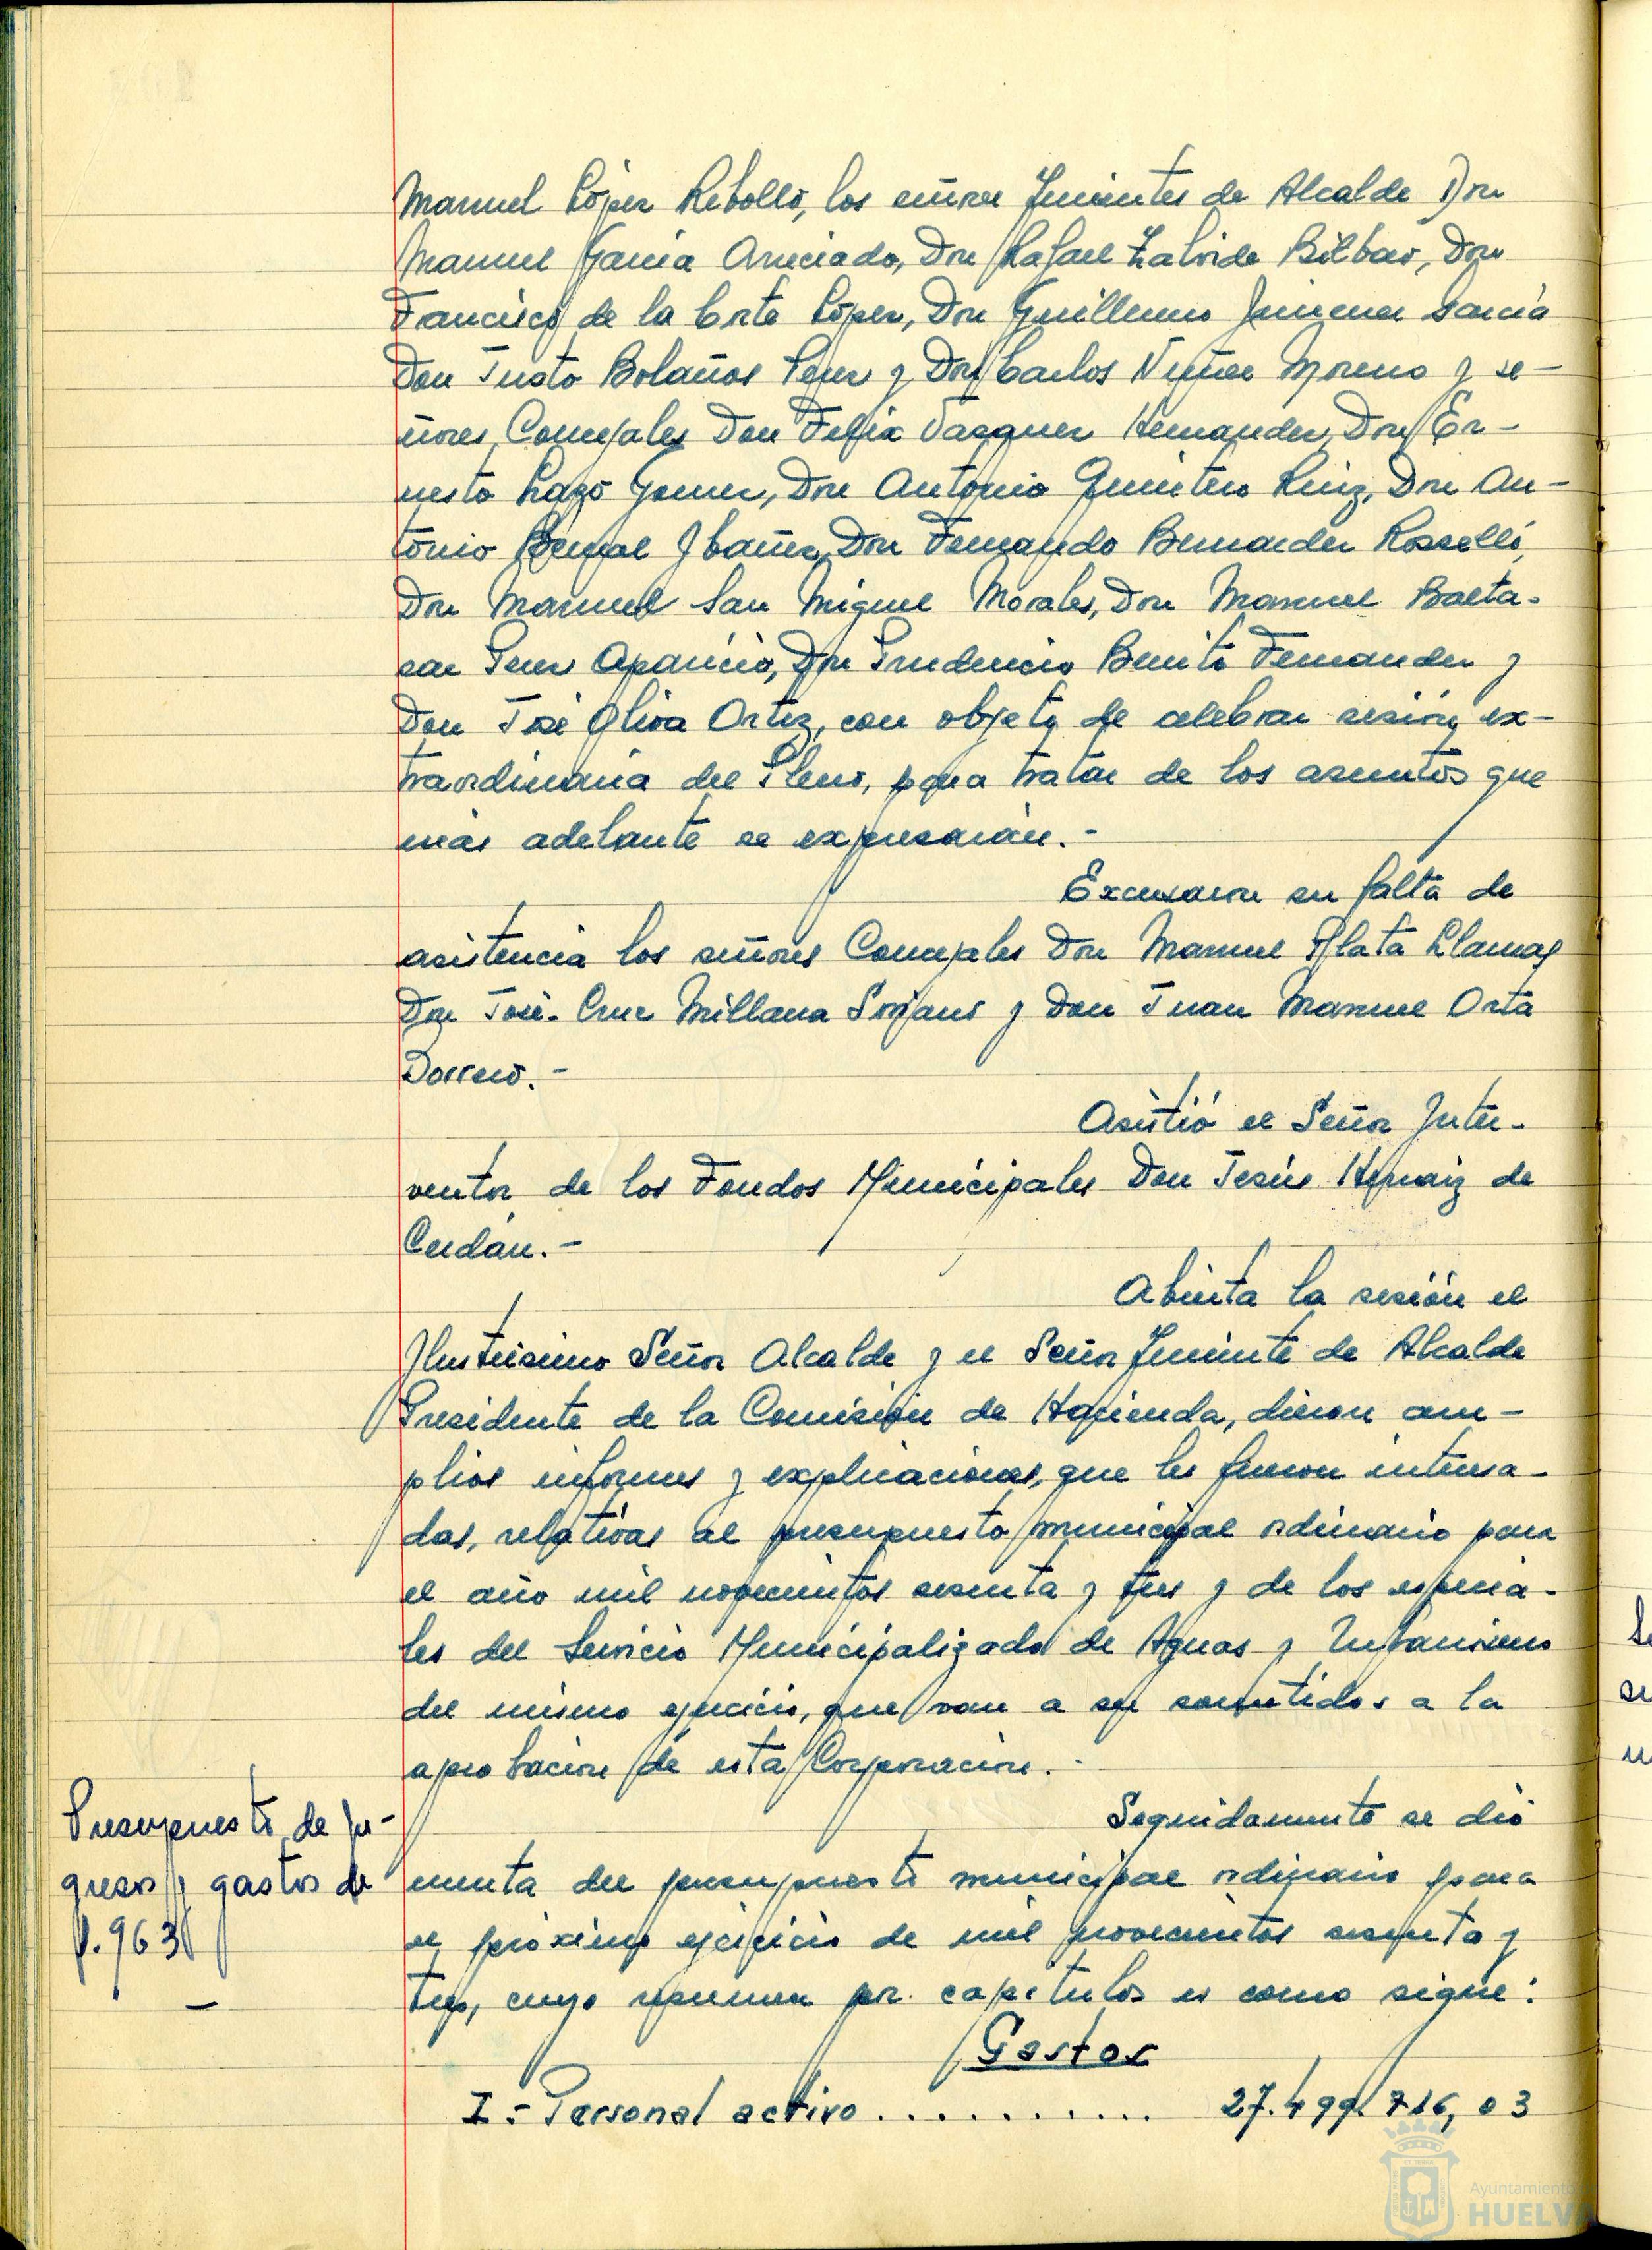 Manuel López Rebollo, los señores Tenientes de Alcalde Don
Manuel García Anunciado, Don Rafael Zalvide Bilbao, Don
Francisco de la Corte López, Don Guillermo Jimenez García
Don Justo Bolaños Perez y Don Carlos Nuñez Moreno y se-
ñores Concejales Don Felix Vazquez Hernandez, Don Er-
nesto Lazo Gomez, Don Antonio Quintero Ruiz, Don An-
tonio Bernal Ibañez, Don Fernando Bernardez Rosselló,
Don Manuel San Miguel Morales, Don Manuel Balta-
sar Perez Aparicio, Don Prudencio Benito Fernandez y
Don José Oliva Ortiz, con objeto de celebrar sesión ex-
traordinaria del Pleno, para tratar de los asuntos que
más adelante se expresarán.-
Excusaron su falta de
asistencia los señores Concejales Don Manuel Plata Llamas
Don José-Cruz Millana Soriano y Don Juan Manuel Orta
Borrero.-
Asistió el Señor Inter-
ventor de los Fondos Municipales Don Jesús Hernaiz de
Cerdán.-
Abierta la sesión el
Ilustrisimo Señor Alcalde y el Señor Teniente de Alcalde
Presidente de la Comisión de Hacienda, dieron am-
plios informes y explicaciones, que les fueron interesa-
das, relativas al presupuesto municipal ordinario para
el año mil novecientos sesenta y tres y de los especia-
les del Servicio Municipalizado de Aguas y Urbanismo
del mismo ejercicio, que van a ser sometidos a la
aprobación de esta Corporación.-
Seguidamente se dió
Presupuesto de In-
gresos y gastos de
1.963
cuenta del presupuesto municipal ordinario para
el próximo ejercicio de mil novecientos sesenta y
tres, cuyo resumen por capitulos es como sigue:
Gastos
I.- Personal activo........... 27.499.716,03
Ayuntamiento de
HUELVA